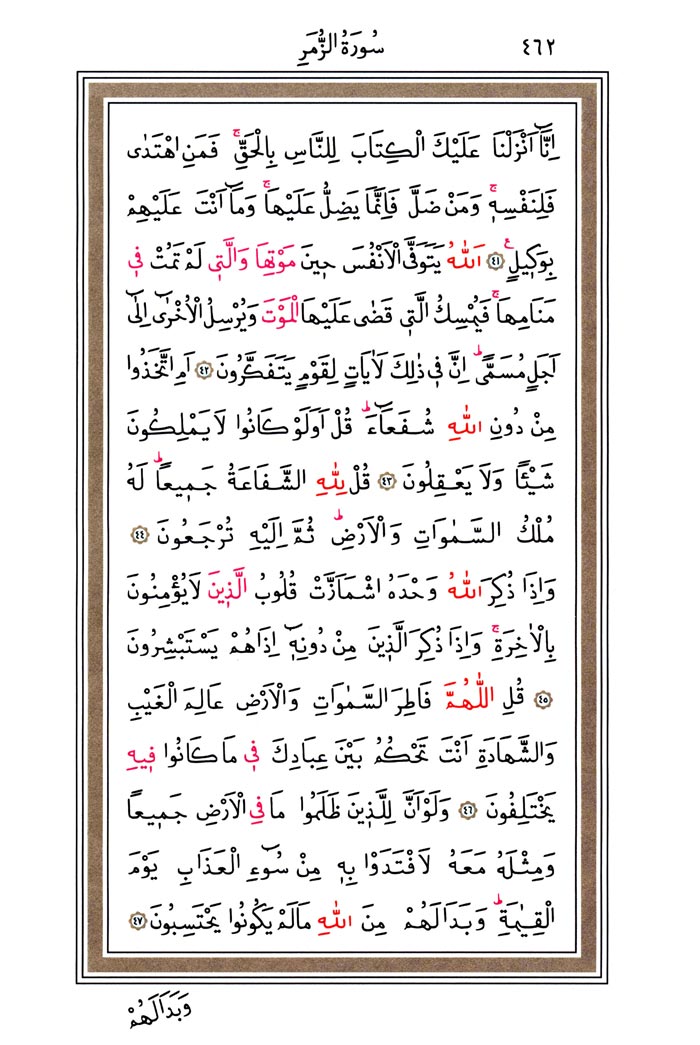 سُورَةُ الزُّمَرِ ٤٦٢
اِنَّٓا اَنْزَلْنَا عَلَيْكَ الْكِتَابَ لِلنَّاسِ بِالْحَقِّۚ فَمَنِ اهْتَدٰى
فَلِنَفْسِه۪ۚ وَمَنْ ضَلَّ فَاِنَّمَا يَضِلُّ عَلَيْهَاۚ وَمَٓا اَنْتَ عَلَيْهِمْ
بِوَك۪يلٍ۟ ٤١ اَللّٰهُ يَتَوَفَّى الْاَنْفُسَ ح۪ينَ مَوْتِهَا وَالَّت۪ي لَمْ تَمُتْ ف۪ي
مَنَامِهَاۚ فَيُمْسِكُ الَّت۪ي قَضٰى عَلَيْهَا الْمَوْتَ وَيُرْسِلُ الْاُخْرٰٓى اِلٰٓى
اَجَلٍ مُسَمًّىۜ اِنَّ ف۪ي ذٰلِكَ لَاٰيَاتٍ لِقَوْمٍ يَتَفَكَّرُونَ ٤٢ اَمِ اتَّخَذُوا
مِنْ دُونِ اللّٰهِ شُفَعَٓاءَۜ قُلْ اَوَلَوْ كَانُوا لَا يَمْلِكُونَ
شَيْـًٔا وَلَا يَعْقِلُونَ ٤٣ قُلْ لِلّٰهِ الشَّفَاعَةُ جَم۪يعًاۜ لَهُ
مُلْكُ السَّمٰوَاتِ وَالْاَرْضِۜ ثُمَّ اِلَيْهِ تُرْجَعُونَ ٤٤
وَاِذَا ذُكِرَ اللّٰهُ وَحْدَهُ اشْمَاَزَّتْ قُلُوبُ الَّذ۪ينَ لَا يُؤْمِنُونَ
بِالْاٰخِرَةِۚ وَاِذَا ذُكِرَ الَّذ۪ينَ مِنْ دُونِه۪ٓ اِذَا هُمْ يَسْتَبْشِرُونَ
٤٥ قُلِ اللّٰهُمَّ فَاطِرَ السَّمٰوَاتِ وَالْاَرْضِ عَالِمَ الْغَيْبِ
وَالشَّهَادَةِ اَنْتَ تَحْكُمُ بَيْنَ عِبَادِكَ ف۪ي مَا كَانُوا ف۪يهِ
يَخْتَلِفُونَ ٤٦ وَلَوْ اَنَّ لِلَّذ۪ينَ ظَلَمُوا مَا فِي الْاَرْضِ جَم۪يعًا
وَمِثْلَهُ مَعَهُ لَافْتَدَوْا بِه۪ مِنْ سُٓوءِ الْعَذَابِ يَوْمَ
الْقِيٰمَةِۜ وَبَدَا لَهُمْ مِنَ اللّٰهِ مَا لَمْ يَكُونُوا يَحْتَسِبُونَ ٤٧
وَبَدَا لَهُمْ